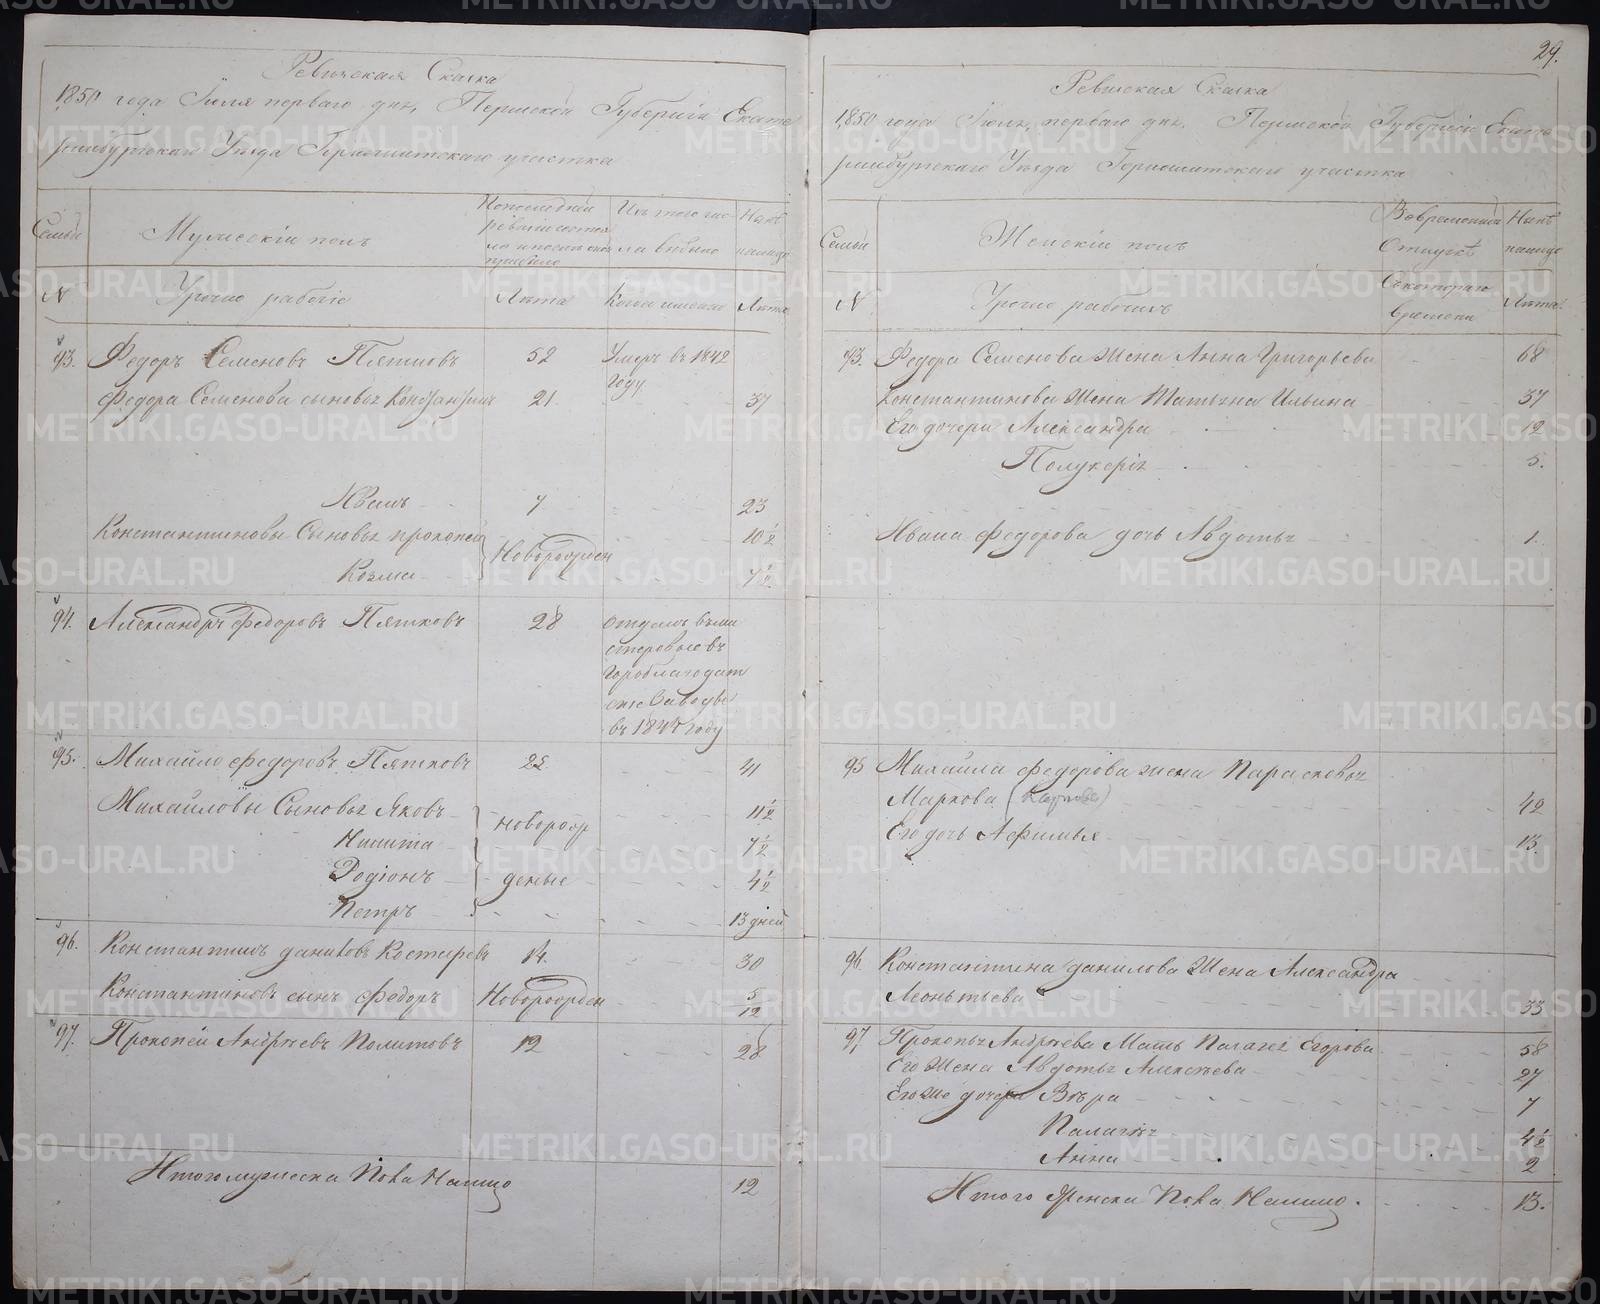 Ревизская Сказка
1850 года Іюля перваго дня, Пермской Губерніи Екате
ринбургскаго Уѣзда Горнощитскаго участка
Семьи
Мужескій полъ
По последней
ревизіи состоя
ло и после оной
прибыло
Изъ того чис
ла выбыло
Нынѣ
налицо
N
Урочно рабочіе
Лѣта
Когда имянно
Лѣта
93. Федоръ Семеновъ Пятковъ 52 Умеръ въ 1842
году
Федора Семенова сыновья Константинъ 21. 37
Иванъ 7 23
Константиновы Сыновья Прокопей 10 1/2
Новорожден
Козма 7 1/2
94. Александръ Федоровъ Пятковъ 28 отданъ въ ма
стеровые въ
Гороблагодат
скіе Заводы
въ 184 году
95. Михайло Федоровъ Пятковъ 25 41
Михайловы Сыновья Яковъ 11 1/2
новорож
Никита 7 1/2
Родіонъ деные 4 1/2
Петръ 13 дней
96. Константинъ Даниловъ Костыревъ 14. 30
Константиновъ сынъ Федоръ Новорожден 5/12
97. Прокопей Андреевъ Политовъ 12 28
Итого мужеска Пола Налицо 12
29.
Ревизская Сказка
1850 года Іюля, перваго дня, Пермской Губерніи Екате
ринбургскаго Уѣзда Горнощитскаго участка
Семьи
Женскій полъ
Во временной
Отлучкѣ
Нынѣ
налицо
N
Урочно рабочихъ
Съ котораго
времени
Лѣта
93. Федора Семенова Жена Анна Григорьева 68
Константинова Жена Татьяна Ильина 37
Его дочери Александра 12
Полукерія 5.
Ивана Федорова дочь Авдотья 1.
95 Михайла Федорова жена Парасковья
Маркова (Карпова) 42
Его дочь Афимья 13.
96. Константина Данилова Жена Александра
Леонтьева 33
97. Прокопья Андреева Мать Палагея Егорова 58
Его Жена Авдотья Алексеева 27
Его же дочери Вѣра 7
Палагея 4 1/2
Анна 2
Итого Женска Пола Налицо. 13.
METRIKI.GASO-URAL.RU